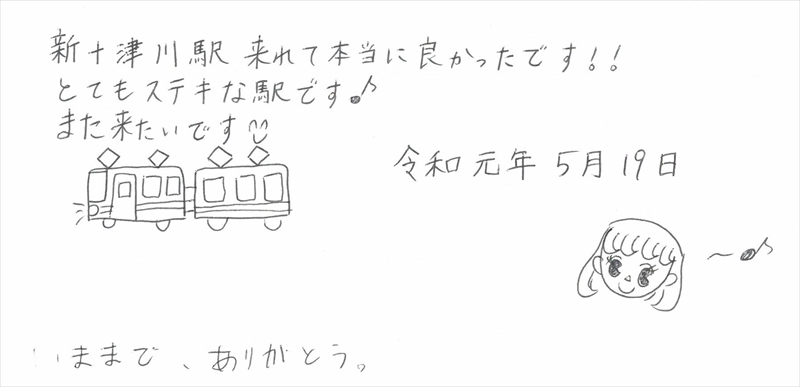 新十津川駅 来れて本当に良かったです!!
とてもステキな駅です♪
また来たいです
令和元年 5月19日
〜♪
いままで、ありがとう。